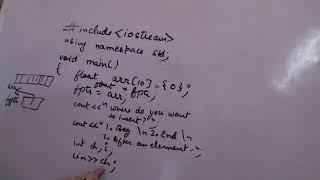 #include <iostream>
using namespace std;
void main()
{
float arr[10] = {0};
float *fptr;
fptr = arr;
cout<<"Where do you want
to insert?";
cout<<"1. Beg \n 2. End \n
3. After an element";
int ch, i;
cin>>ch;